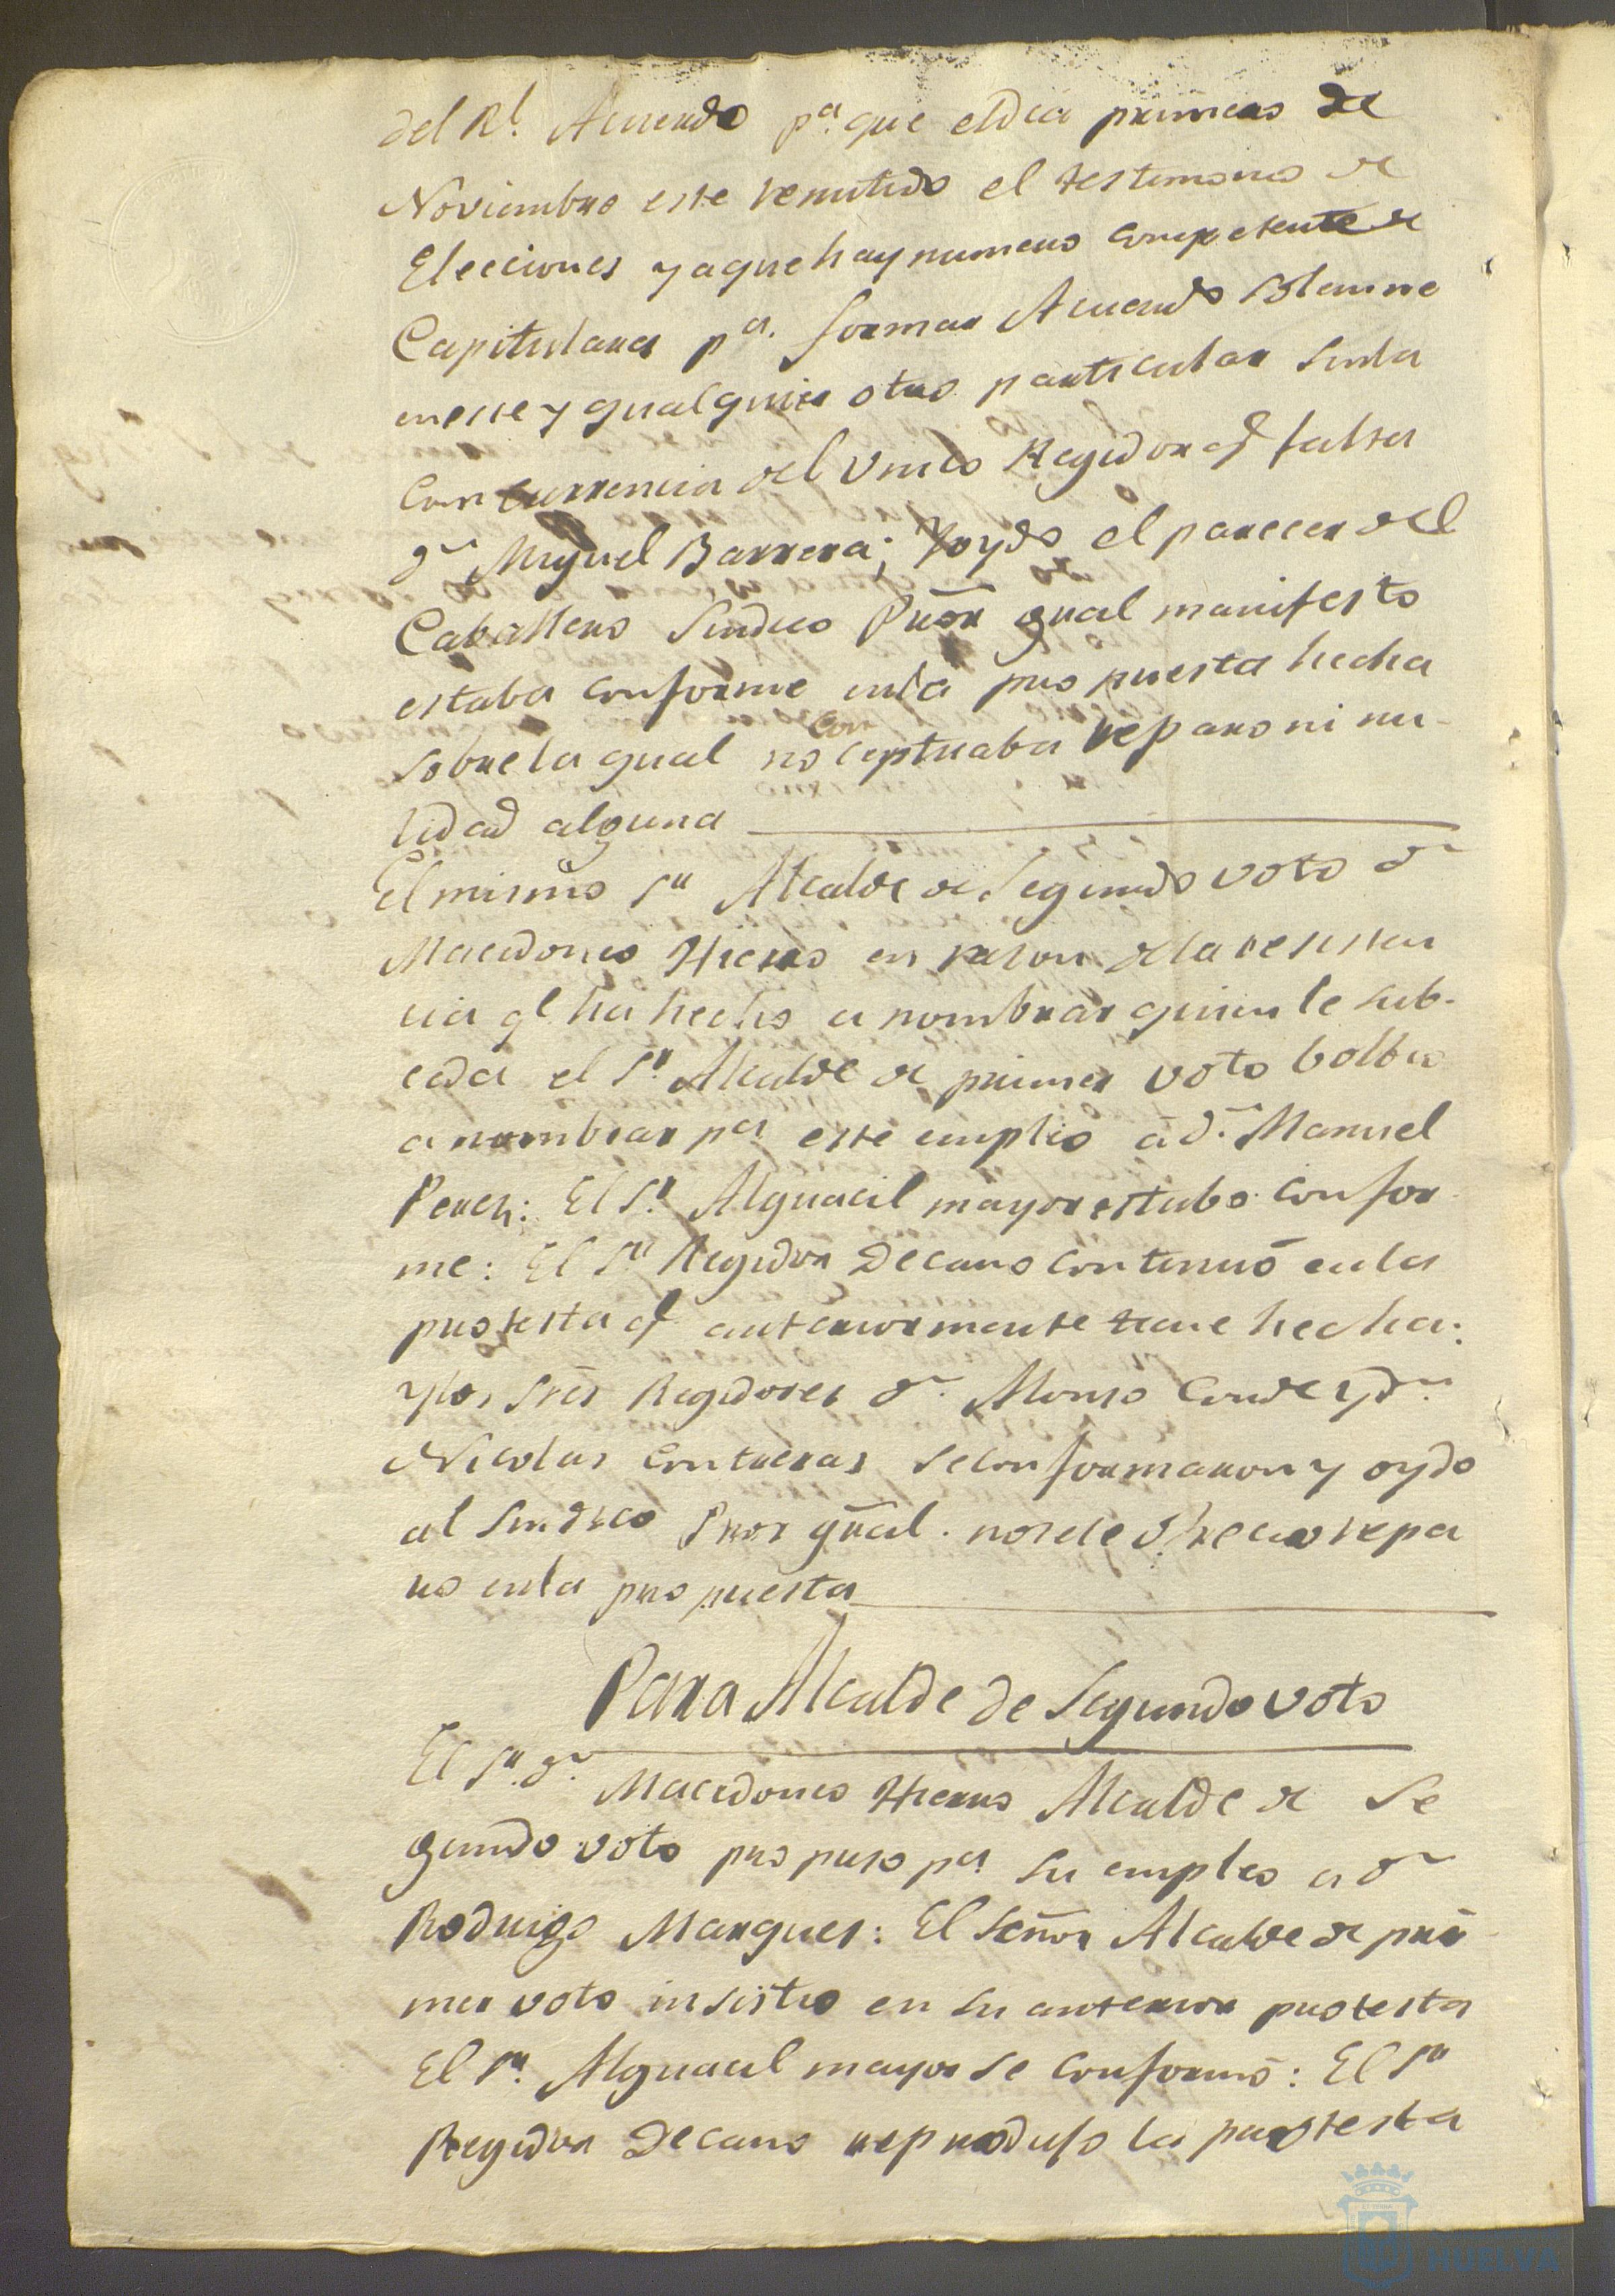 del Rl. Acuerdo pa. que el dia primero de
Noviembre este remitido el testimonio de
Elecciones y a que hay numero competente de
Capitulares pa. formar Acuerdo solemne
meste y qualquier otro particular sin la
concurrencia del Unico Regidor q falta
dn Miguel Barrera; Y oydo el parecer del
Caballero Sindico Pror gral manifesto
estaba conforme en la propuesta hecha
con
sobre la qual no ceptuaba reparo ni nu-
lidad alguna
El mismo Sr Alcalde de Segundo voto dn
Macedonio Hierro en razon de la resisten
cia qe ha hecho a nombrar quien le sub-
ceda el Sr. Alcalde de primer voto bolbio
a nombrar pa este empleo a dn. Manuel
Perez: El Sr. Alguacil mayor estubo confor
me: El Sr Regidor Decano continuó en la
protesta q anteriormente tiene hecha:
y los Sres Regidores dn. Alonso Conde y dn.
Nicolas Contreras se conformaron y oydo
al Sindico Pror gral. no se le ofrecio repa
ro en la propuesta
Para Alcalde de Segundo voto
El Sr. dn. Macedonio Hierro Alcalde de Se
gundo voto propuso pa su empleo a dn
Rodrigo Marques: El Señor Alcalde de pri
mer voto insistio en su anterior protesta
El Sr. Alguacil mayor se conformó: El Sr
Regidor Decano reprodujo la protesta
HUELVA